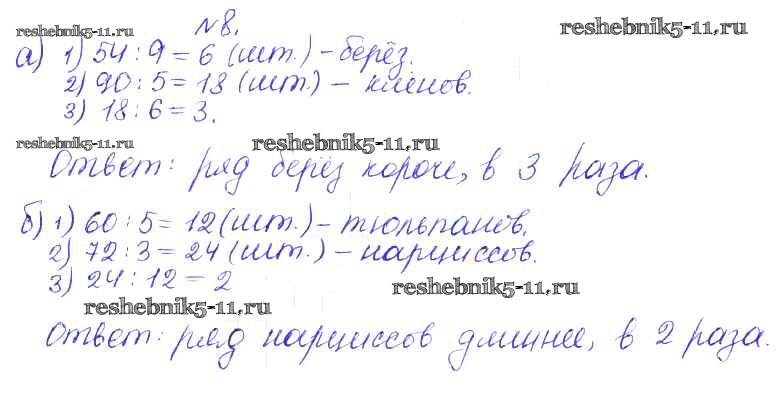 №8.
reshebnik5-11.ru reshebnik5-11.ru
а) 1) 54 : 9 = 6 (шт.) – берёз.
2) 90 : 5 = 18 (шт.) – клёнов.
3) 18 : 6 = 3.
reshebnik5-11.ru reshebnik5-11.ru
Ответ: ряд берёз короче, в 3 раза.
б) 1) 60 : 5 = 12 (шт.) – тюльпанов.
2) 72 : 3 = 24 (шт.) – нарциссов.
3) 24 : 12 = 2
reshebnik5-11.ru reshebnik5-11.ru
Ответ: ряд нарциссов длиннее, в 2 раза.